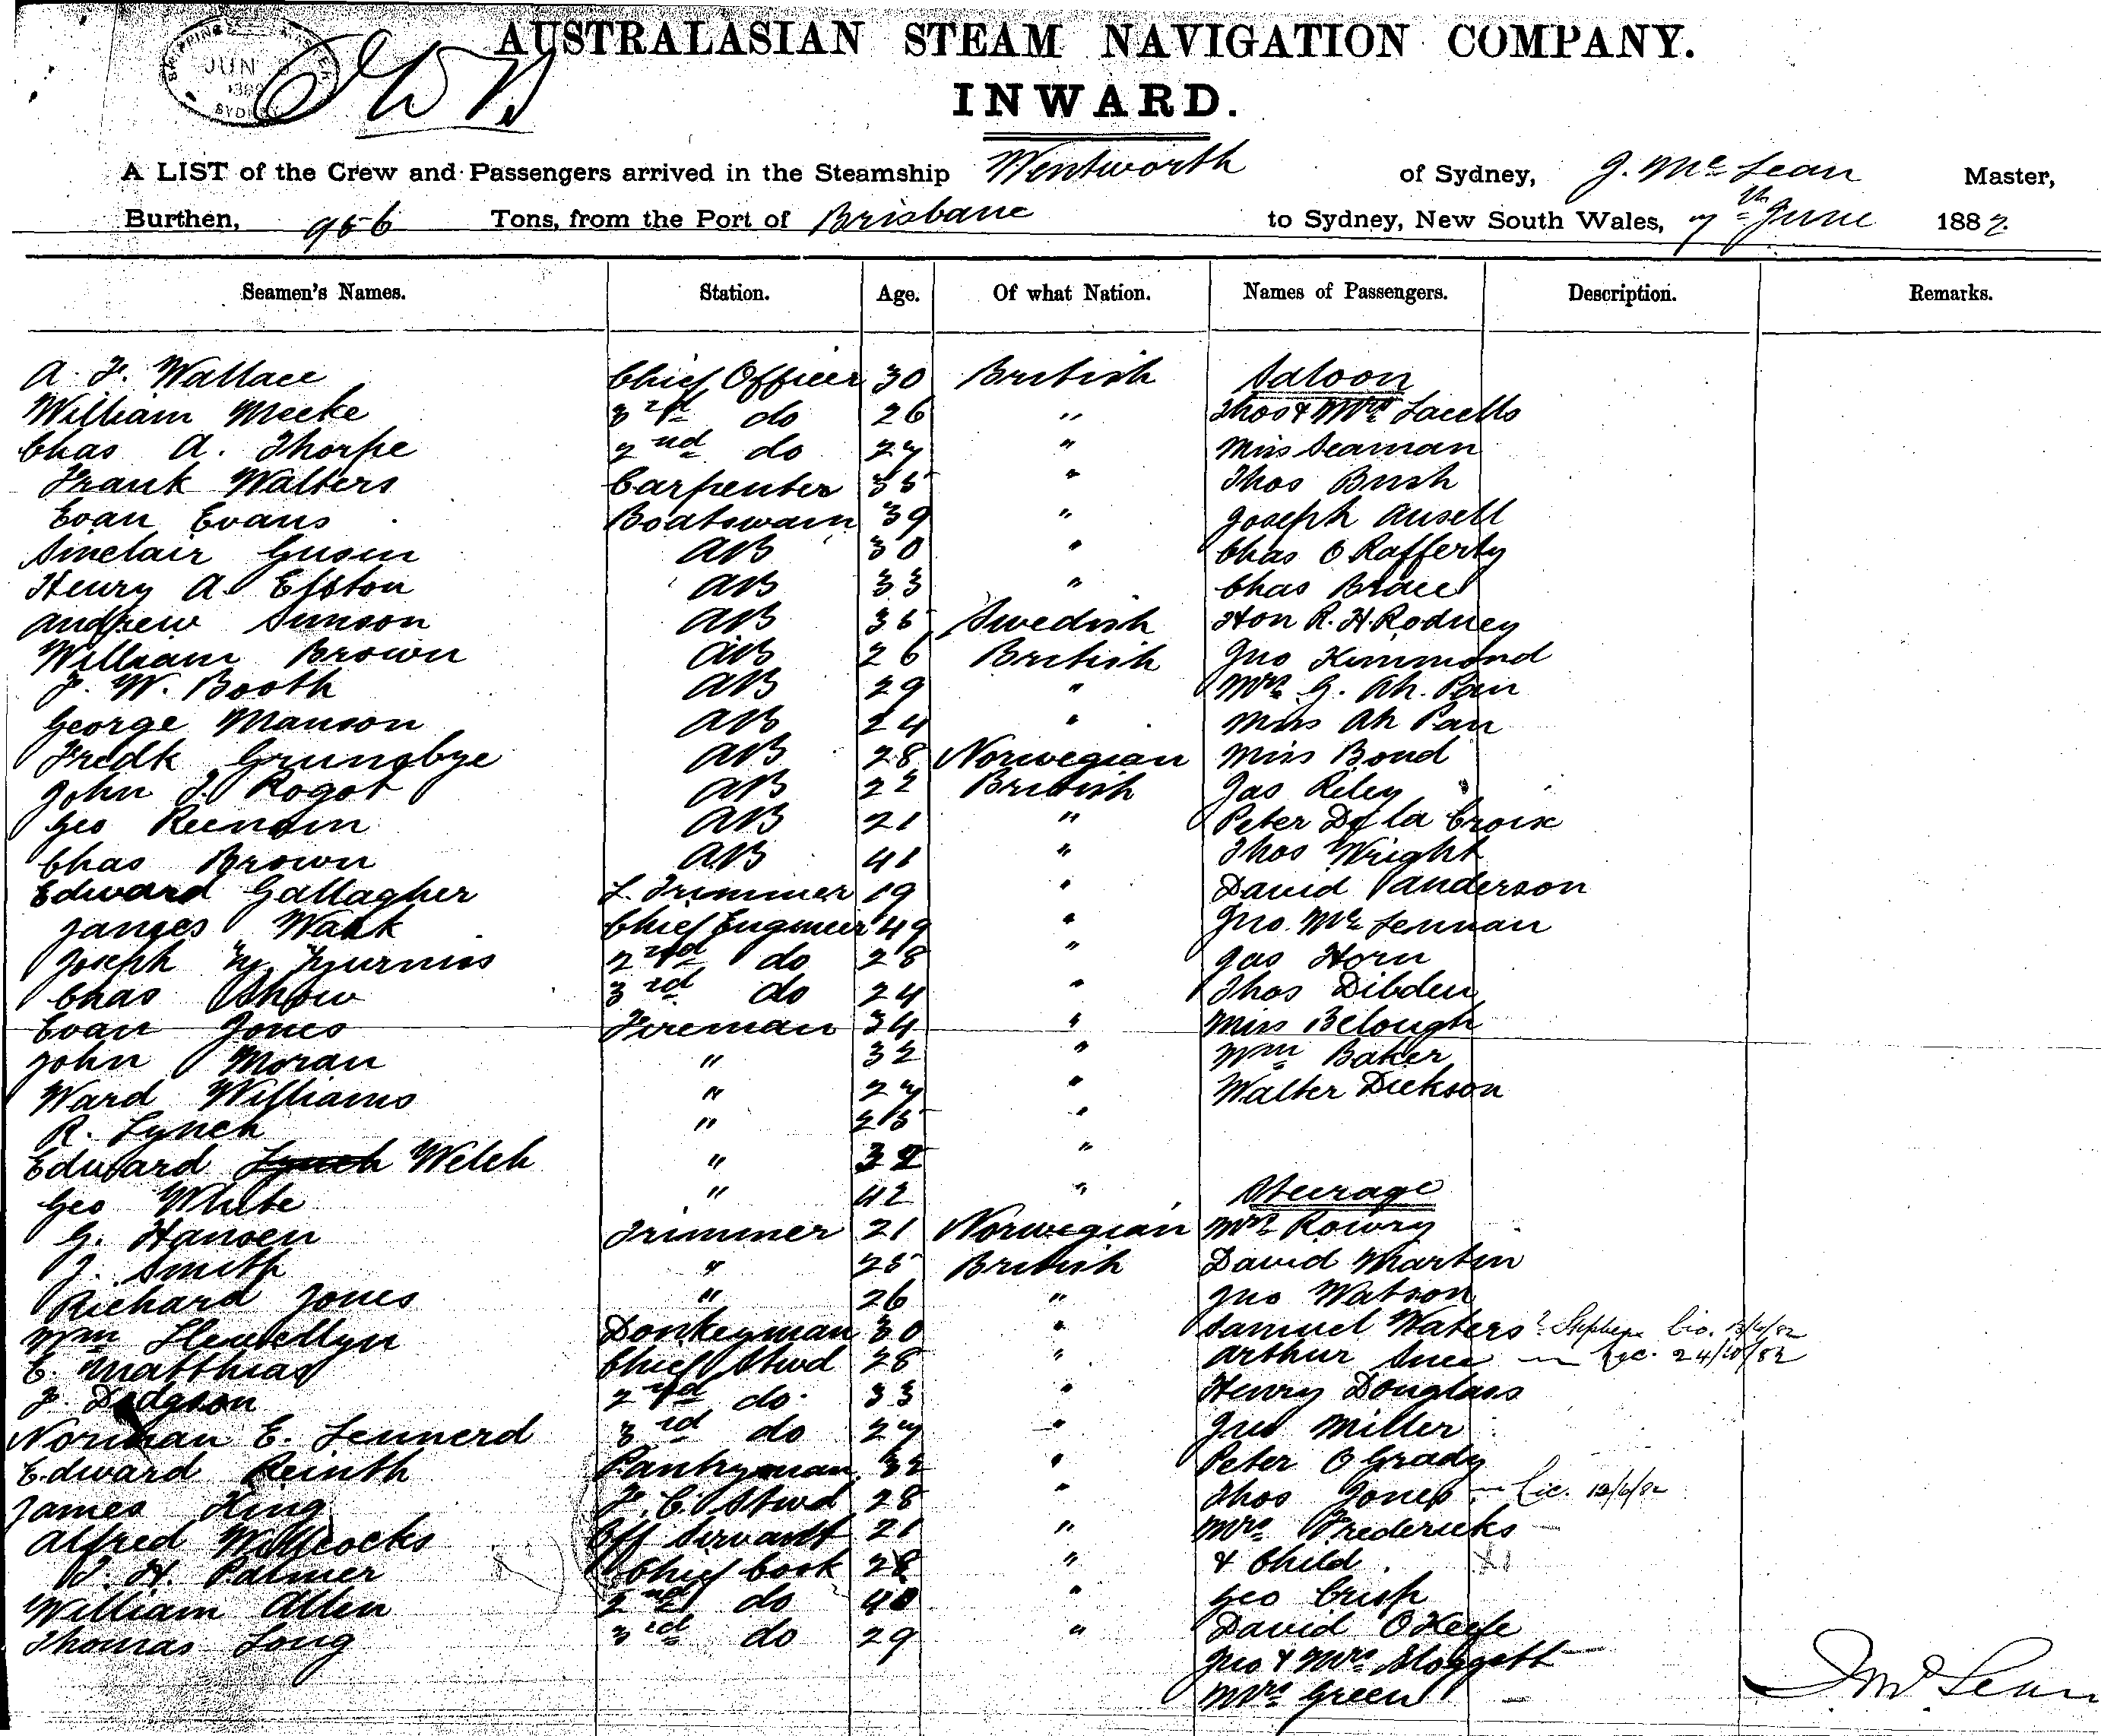 AUSTRALASIAN STEAM NAVIGATION COMPANY.
JUN
SYDNEY
INWARD.
A LIST of the Crew and Passengers arrived in the Steamship Wentworth of Sydney, J. McLean Master,
Burthen, 956 Tons, from the Port of Brisbane to Sydney, New South Wales, 7th June 1882.
Seamen's Names. Station. Age. Of what Nation. Names of Passengers. Description. Remarks.
A. F. Wallace Chief Officer 30 British Saloon
William Meeke 3rd do 26 " Thos & Mrs
Chas A. Thorpe 2nd do 27 " Miss Seaman
Frank Walters Carpenter 35 " Thos Bush
Evan Evans Boatswain 39 " Joseph Ansell
Sinclair AB 30 " Chas O Rafferty
Henry A Efston AB 33 " Chas Brace
Andrew Sunson AB 35 Swedish Hon R. H. Rodney
William Brown AB 26 British Jno Kimmond
F. W. Booth AB 29 " Mrs G. Ah. Pan
George Manson AB 24 " Miss Ah Pan
Fredk Grunsbye AB 28 Norwegian Miss Bond
John J. Rogot AB 22 British Jas Riley
Geo AB 21 " Peter De la Croix
Chas Brown AB 41 " Thos Wright
Edward Gallagher L. Trimmer 19 " David Vanderson
James Wark Chief Engineer 49 " Jno McLennan
Joseph 2nd do 28 " Jas Horn
Chas Show 3rd do 24 " Thos Dibden
Evan Jones Fireman 34 " Miss Belough
John Moran " 32 " Wm Baker
Ward Williams " 27 " Walter Dickson
R. Lynch " 25 "
Edward Lynch Welch " 32 "
Geo White " 42 " Steerage
G. Hansen Trimmer 21 Norwegian Mrs Rowry
J. Smith " 25 British David Martin
Richard Jones " 26 " Jno Watson
Wm Llewellyn Donkeyman 30 " Samuel Waters ? Stephen Lic. 13/6/82
E. Matthias Chief Stwd 28 " Arthur 24/10/82
F. Dodgson 2nd do 33 " Henry Douglass
Norman E. Lennerd 3rd do 27 " Jno Miller
Edward Reinth Pantryman 32 " Peter O Grady
James King F. C. Stwd 28 " Thos Jones - Lic. 12/6/82
Alfred Willcocks Off Servant 21 " Mrs Fredericks -
J. H. Palmer Chief Cook 28 " & Child
William Allen 2nd do 40 " Geo Crisp
Thomas Long 3rd do 29 " David OKeefe
Jno & Mrs Sloggett -
Mrs Green -
J McLean